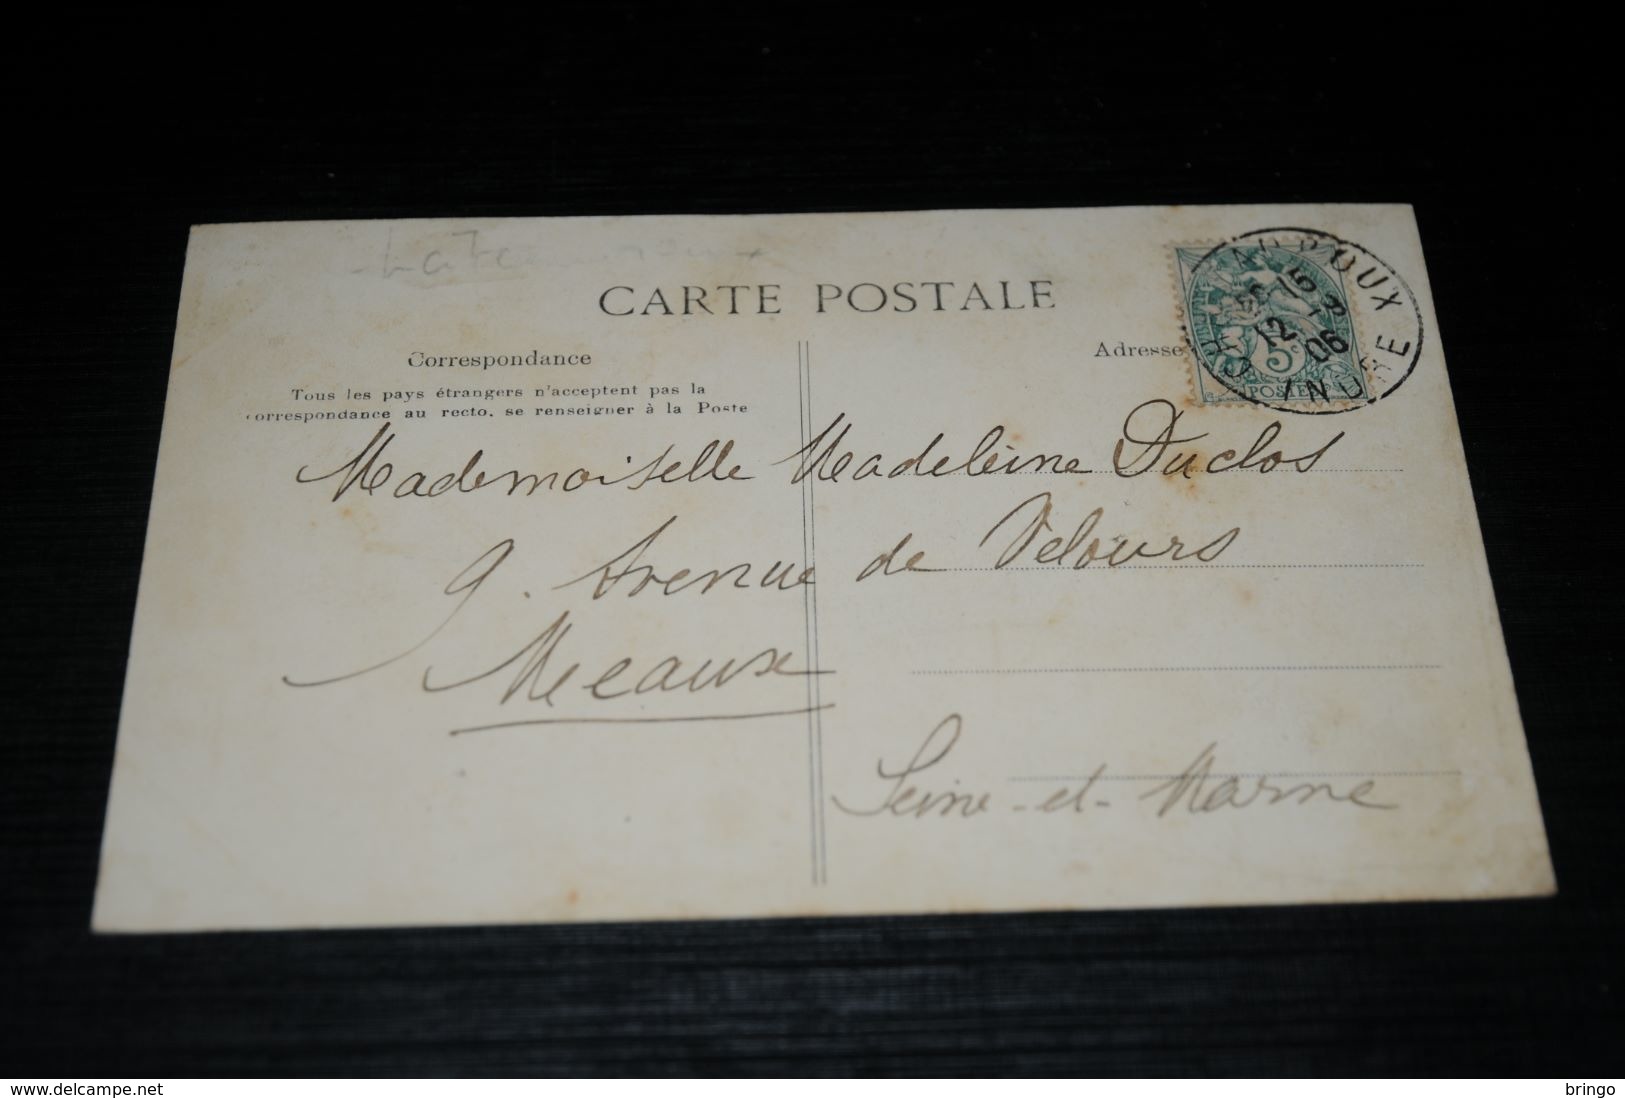 CARTE POSTALE
Correspondance
Tous les pays étrangers n'acceptent pas la
correspondance au recto, se renseigner à la Poste
Adresse
CHATEAUROUX
12 15
12 -3
06
INDRE
5c
POSTES
Mademoiselle Madeleine Duclos
9. Avenue de Velours
Meaux
Seine-et-Marne
www.delcampe.net
bringo